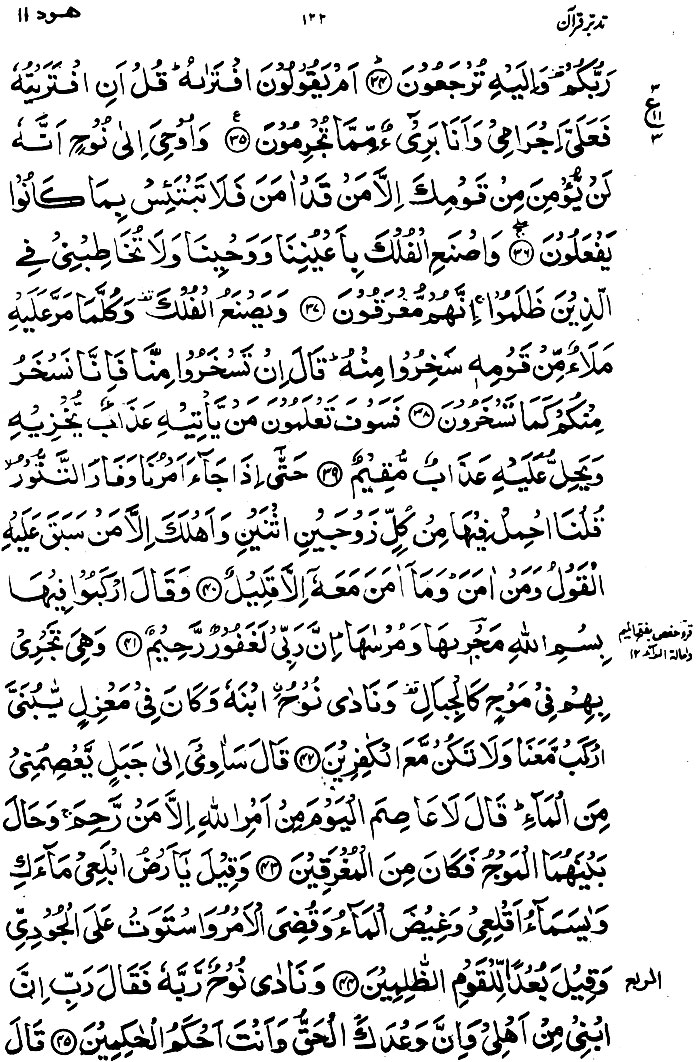 تدبر قرآن ۱۲۲ هود ۱۱
رَبُّكُمْ ۚ وَإِلَيْهِ تُرْجَعُونَ ﴿۳۴﴾ أَمْ يَقُولُونَ افْتَرٰىهُ ۚ قُلْ إِنِ افْتَرَيْتُهُ
فَعَلَيَّ إِجْرَامِي وَأَنَا بَرِيءٌ مِّمَّا تُجْرِمُونَ ﴿۳۵﴾ وَأُوحِيَ إِلٰى نُوحٍ أَنَّهُ
لَنْ يُّؤْمِنَ مِنْ قَوْمِكَ إِلَّا مَنْ قَدْ اٰمَنَ فَلَا تَبْتَئِسْ بِمَا كَانُوا
يَفْعَلُونَ ﴿۳۶﴾ وَاصْنَعِ الْفُلْكَ بِأَعْيُنِنَا وَوَحْيِنَا وَلَا تُخَاطِبْنِي فِي
الَّذِينَ ظَلَمُوا ۚ إِنَّهُمْ مُّغْرَقُونَ ﴿۳۷﴾ وَيَصْنَعُ الْفُلْكَ وَكُلَّمَا مَرَّ عَلَيْهِ
مَلَأٌ مِّنْ قَوْمِهٖ سَخِرُوا مِنْهُ ۚ قَالَ إِنْ تَسْخَرُوا مِنَّا فَإِنَّا نَسْخَرُ
مِنْكُمْ كَمَا تَسْخَرُونَ ﴿۳۸﴾ فَسَوْفَ تَعْلَمُونَ مَنْ يَّأْتِيهِ عَذَابٌ يُّخْزِيهِ
وَيَحِلُّ عَلَيْهِ عَذَابٌ مُّقِيمٌ ﴿۳۹﴾ حَتّٰى إِذَا جَاءَ أَمْرُنَا وَفَارَ التَّنُّورُ
قُلْنَا احْمِلْ فِيهَا مِنْ كُلٍّ زَوْجَيْنِ اثْنَيْنِ وَأَهْلَكَ إِلَّا مَنْ سَبَقَ عَلَيْهِ
الْقَوْلُ وَمَنْ اٰمَنَ ۚ وَمَا اٰمَنَ مَعَهُ إِلَّا قَلِيلٌ ﴿۴۰﴾ وَقَالَ ارْكَبُوا فِيهَا
بِسْمِ اللهِ مَجْرٖىهَا وَمُرْسٰىهَا ۚ إِنَّ رَبِّي لَغَفُورٌ رَّحِيمٌ ﴿۴۱﴾ وَهِيَ تَجْرِي
بِهِمْ فِي مَوْجٍ كَالْجِبَالِ وَنَادٰى نُوحُ ابْنَهُ وَكَانَ فِي مَعْزِلٍ يّٰبُنَيَّ
ارْكَبْ مَّعَنَا وَلَا تَكُنْ مَّعَ الْكٰفِرِينَ ﴿۴۲﴾ قَالَ سَاٰوِي إِلٰى جَبَلٍ يَّعْصِمُنِي
مِنَ الْمَاءِ ۚ قَالَ لَا عَاصِمَ الْيَوْمَ مِنْ أَمْرِ اللهِ إِلَّا مَنْ رَّحِمَ ۚ وَحَالَ
بَيْنَهُمَا الْمَوْجُ فَكَانَ مِنَ الْمُغْرَقِينَ ﴿۴۳﴾ وَقِيلَ يٰأَرْضُ ابْلَعِي مَاءَكِ
وَيٰسَمَاءُ أَقْلِعِي وَغِيضَ الْمَاءُ وَقُضِيَ الْأَمْرُ وَاسْتَوَتْ عَلَى الْجُودِيِّ
وَقِيلَ بُعْدًا لِّلْقَوْمِ الظّٰلِمِينَ ﴿۴۴﴾ وَنَادٰى نُوحٌ رَّبَّهُ فَقَالَ رَبِّ إِنَّ
ابْنِي مِنْ أَهْلِي وَإِنَّ وَعْدَكَ الْحَقُّ وَأَنْتَ أَحْكَمُ الْحٰكِمِينَ ﴿۴۵﴾ قَالَ
۳
ع
۱۱
۳
قرء حفص بفتح المیم
وامالة الراء ۱۲
الربع